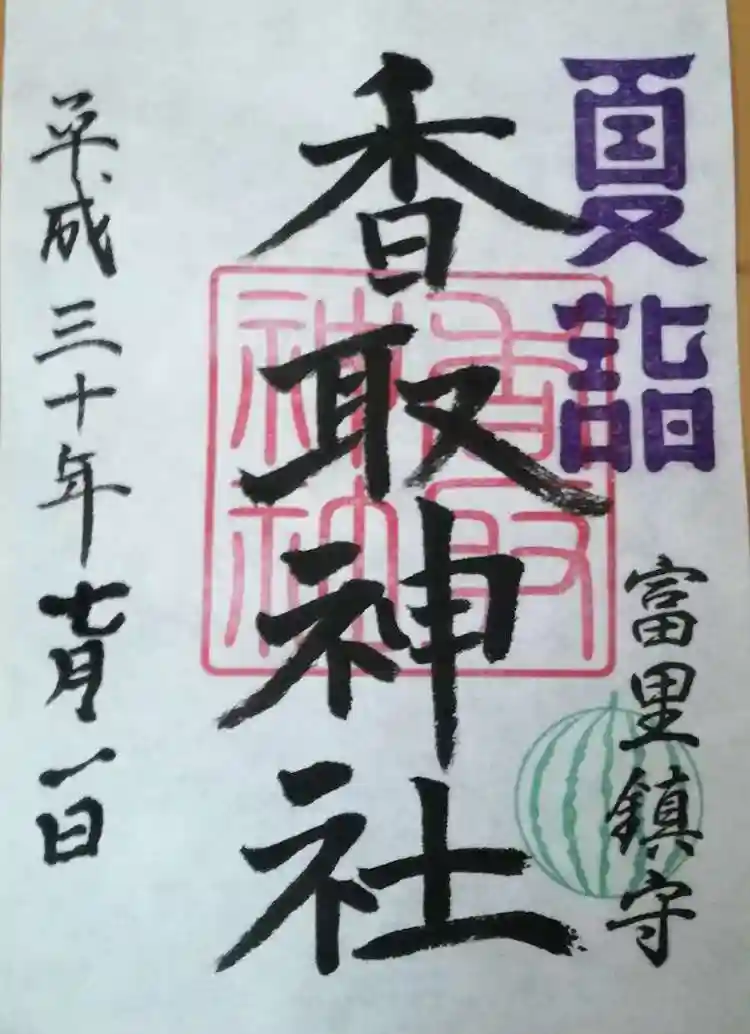 夏詣
富里鎮守
香取神社
香取
神社
平成三十年七月一日